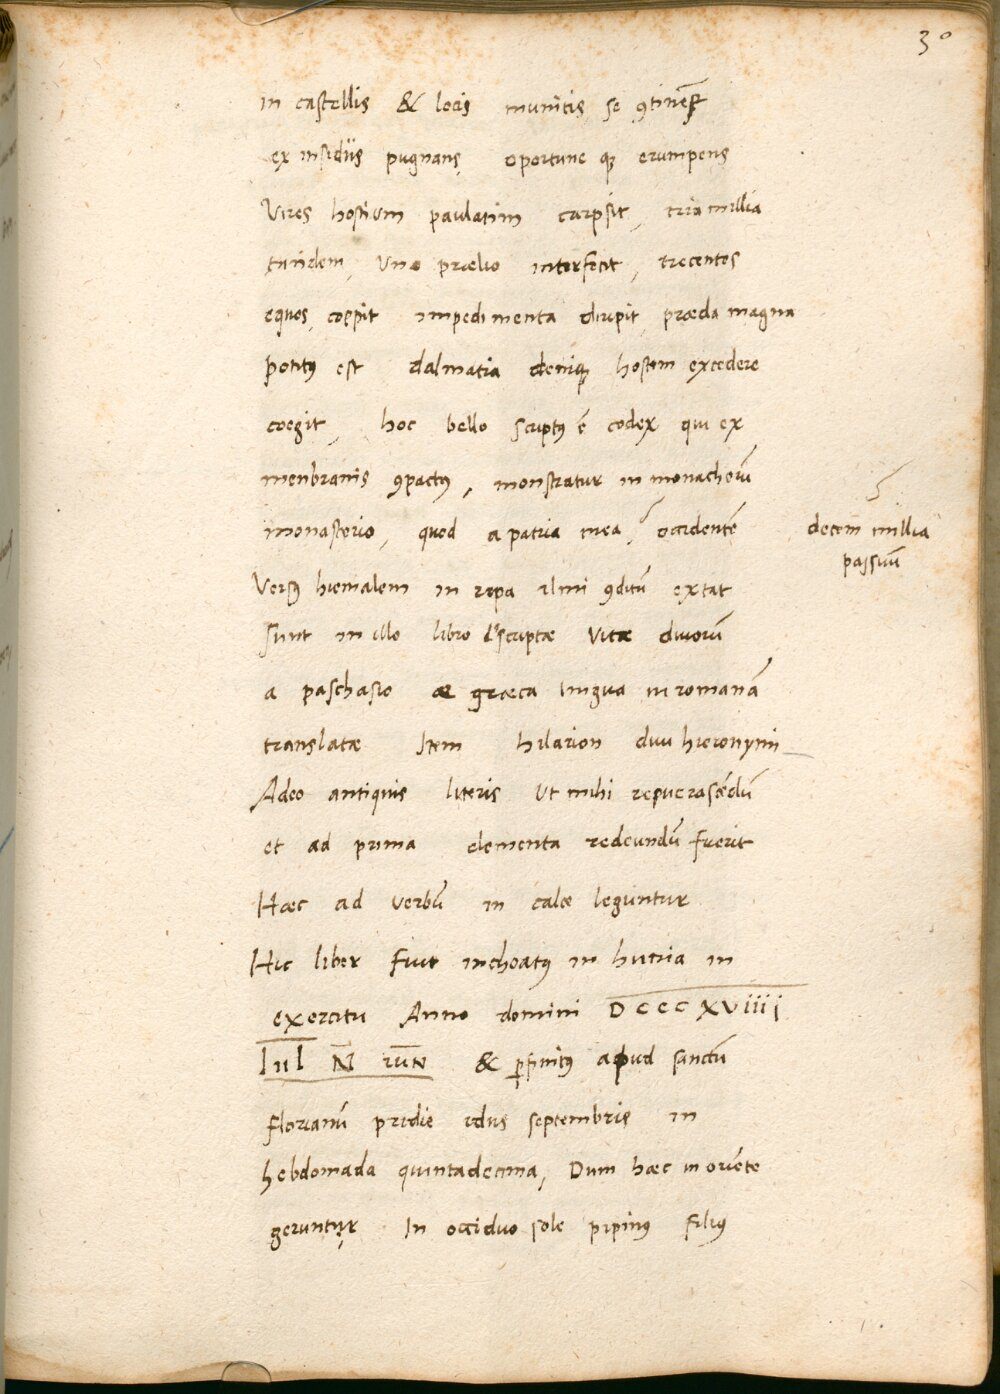 30
in castellis & locis munitis, se ꝯtinēs
ex insidiis pugnans, oportune qꝫ erumpens
Vires hostium paulatim carpsit, tria millia
tandem, Uno prælio interfecit, trecentos
equos, coepit impedimenta diripit, præda magna
potitꝰ est dalmatia deniqꝫ hostem excedere
coegit, hoc bello scriptꝰ ē codex qui ex
menbranis ꝯpactꝰ, monstratur in monachorū
monasterio, quod a patria mea, occidentē
decem millia
passuū
Versꝰ hiemalem in ripa ilmi ꝯditū extat
sunt in illo libro descriptæ vitæ diuorū
a paschasio æ græca lingua in romanā
translatæ Item hilarion diui hieronymi
Adeo antiquis literis Ut mihi repuerascēdū
et ad prima elementa redeundū fuerit
Hæc ad verbū in calce leguntur
Hic liber Fuit inchoatꝰ in hunia in
exercitu Anno domini DCCCXVIIII
IIII N̄ iun̄ & ꝑfinitꝰ apud sanctū
florianū pridie idus septembris in
hebdomada quintadecima, Dum hæc in oriēte
geruntur In occiduo sole pipinꝰ filiꝰ